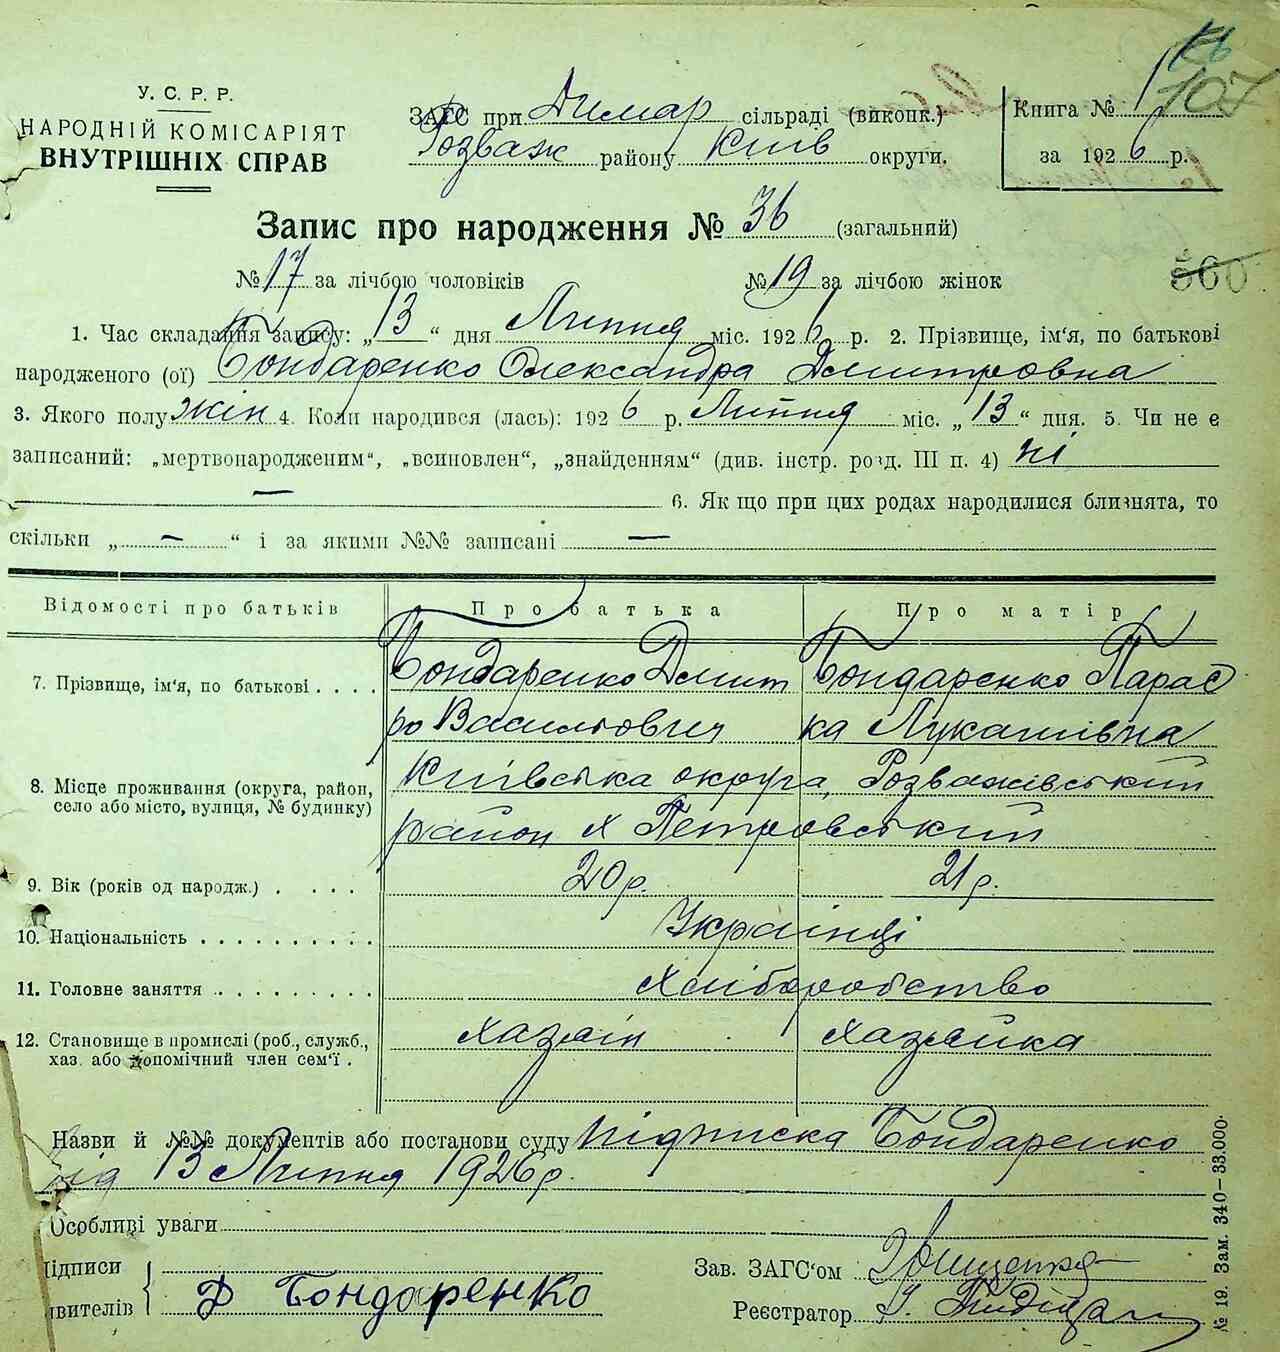 107
У. С. Р. Р.
НАРОДНІЙ КОМІСАРІЯТ
ВНУТРІШНІХ СПРАВ
ЗАГС при Димар сільраді (виконк.)
Розваж району Київ округи.
Книга №
за 1926 р.
Запис про народження № 36 (загальний)
№ 17 за лічбою чоловіків № 19 за лічбою жінок
560
1. Час складання запису: „13“ дня Липня міс. 1926 р. 2. Прізвище, ім'я, по батькові
народженого (ої) Бондаренко Олександра Дмитровна
3. Якого полу жін 4. Коли народився (лась): 1926 р. Липня міс. „13“ дня. 5. Чи не є
записаний: „мертвонародженим“, „всиновлен“, „знайденням“ (див. інстр. розд. III п. 4) ні
— 6. Як що при цих родах народилися близнята, то
скільки „—“ і за якими №№ записані —
Відомості про батьків Про батька Про матір
7. Прізвище, ім'я, по батькові . . . . Бондаренко Дмит Бондаренко Парас
ро Васильович ка Лукашівна
8. Місце проживання (округа, район, село або місто, вулиця, № будинку) Київська округа, Розважівський
район х Петровський
9. Вік (років од народж.) . . . . 20 р. 21 р.
10. Національність . . . . . . . . . . Українці
11. Головне заняття . . . . . . . . . Хліборобство
12. Становище в промислі (роб., служб., хаз. або допомічний член сем'ї . хазяїн хазяйка
Назви й №№ документів або постанови суду підписка Бондаренко
від 13 Липня 1926 р.
Особливі уваги
Підписи
явителів Д Бондаренко
Зав. ЗАГС'ом
Реєстратор
№ 19. Зам. 340–33.000.